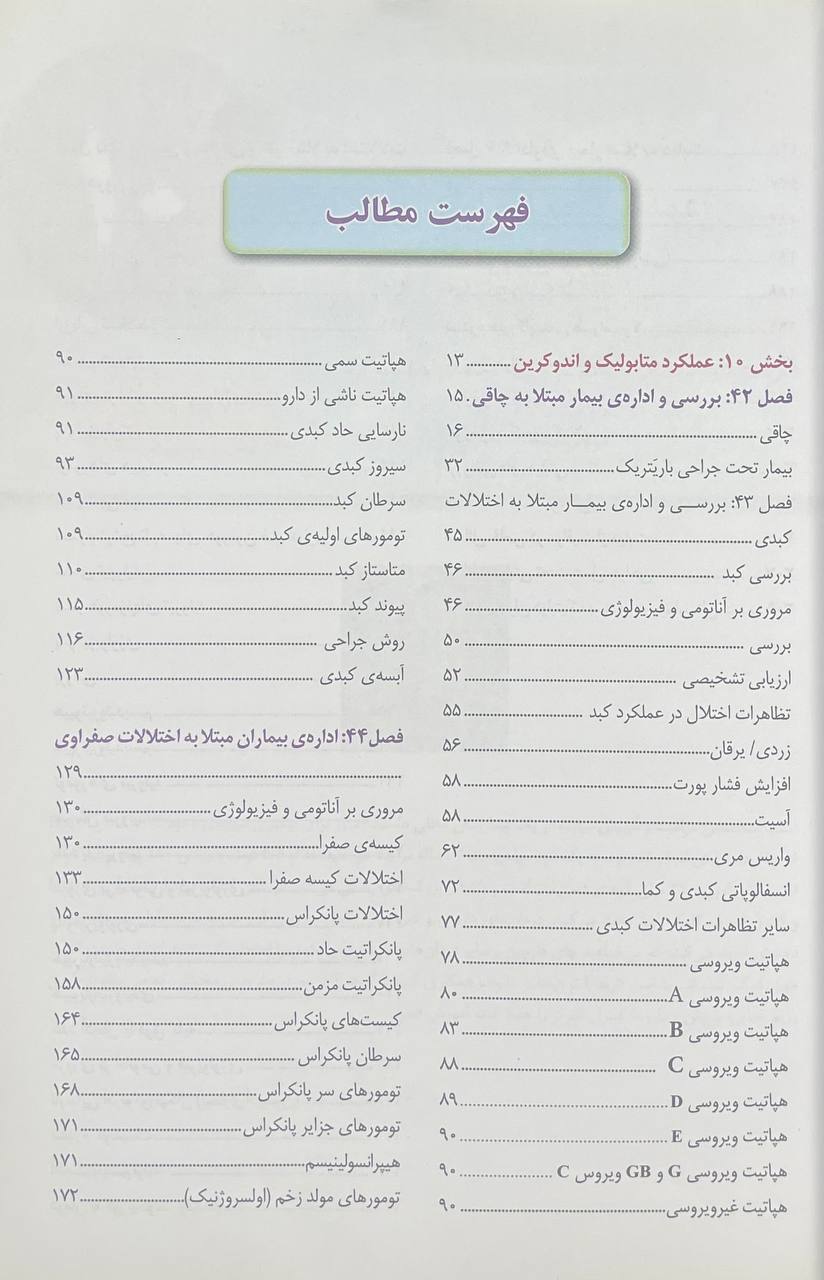 فهرست مطالب
بخش ۱۰: عملکرد متابولیک و اندوکرین ........... ۱۳
فصل ۴۲: بررسی و اداره‌ی بیمار مبتلا به چاقی. ۱۵
چاقی ........... ۱۶
بیمار تحت جراحی باریَتریک ........... ۳۲
فصل ۴۳: بررسـی و اداره‌ی بیمـار مبتلا به اختلالات
کبدی ........... ۴۵
بررسی کبد ........... ۴۶
مروری بر آناتومی و فیزیولوژی ........... ۴۶
بررسی ........... ۵۰
ارزیابی تشخیصی ........... ۵۲
تظاهرات اختلال در عملکرد کبد ........... ۵۵
زردی/ یرقان ........... ۵۶
افزایش فشار پورت ........... ۵۸
آسیت ........... ۵۸
واریس مری ........... ۶۲
انسفالوپاتی کبدی و کما ........... ۷۲
سایر تظاهرات اختلالات کبدی ........... ۷۷
هپاتیت ویروسی ........... ۷۸
هپاتیت ویروسی A ........... ۸۰
هپاتیت ویروسی B ........... ۸۳
هپاتیت ویروسی C ........... ۸۸
هپاتیت ویروسی D ........... ۸۹
هپاتیت ویروسی E ........... ۹۰
هپاتیت ویروسی G و GB ویروس C ........... ۹۰
هپاتیت غیرویروسی ........... ۹۰
هپاتیت سمی ........... ۹۰
هپاتیت ناشی از دارو ........... ۹۱
نارسایی حاد کبدی ........... ۹۱
سیروز کبدی ........... ۹۳
سرطان کبد ........... ۱۰۹
تومورهای اولیه‌ی کبد ........... ۱۰۹
متاستاز کبد ........... ۱۱۰
پیوند کبد ........... ۱۱۵
روش جراحی ........... ۱۱۶
آبسه‌ی کبدی ........... ۱۲۳
فصل۴۴: اداره‌ی بیماران مبتلا به اختلالات صفراوی
........... ۱۲۹
مروری بر آناتومی و فیزیولوژی ........... ۱۳۰
کیسه‌ی صفرا ........... ۱۳۰
اختلالات کیسه صفرا ........... ۱۳۳
اختلالات پانکراس ........... ۱۵۰
پانکراتیت حاد ........... ۱۵۰
پانکراتیت مزمن ........... ۱۵۸
کیست‌های پانکراس ........... ۱۶۴
سرطان پانکراس ........... ۱۶۵
تومورهای سر پانکراس ........... ۱۶۸
تومورهای جزایر پانکراس ........... ۱۷۱
هیپرانسولینیسم ........... ۱۷۱
تومورهای مولد زخم (اولسروژنیک) ........... ۱۷۲